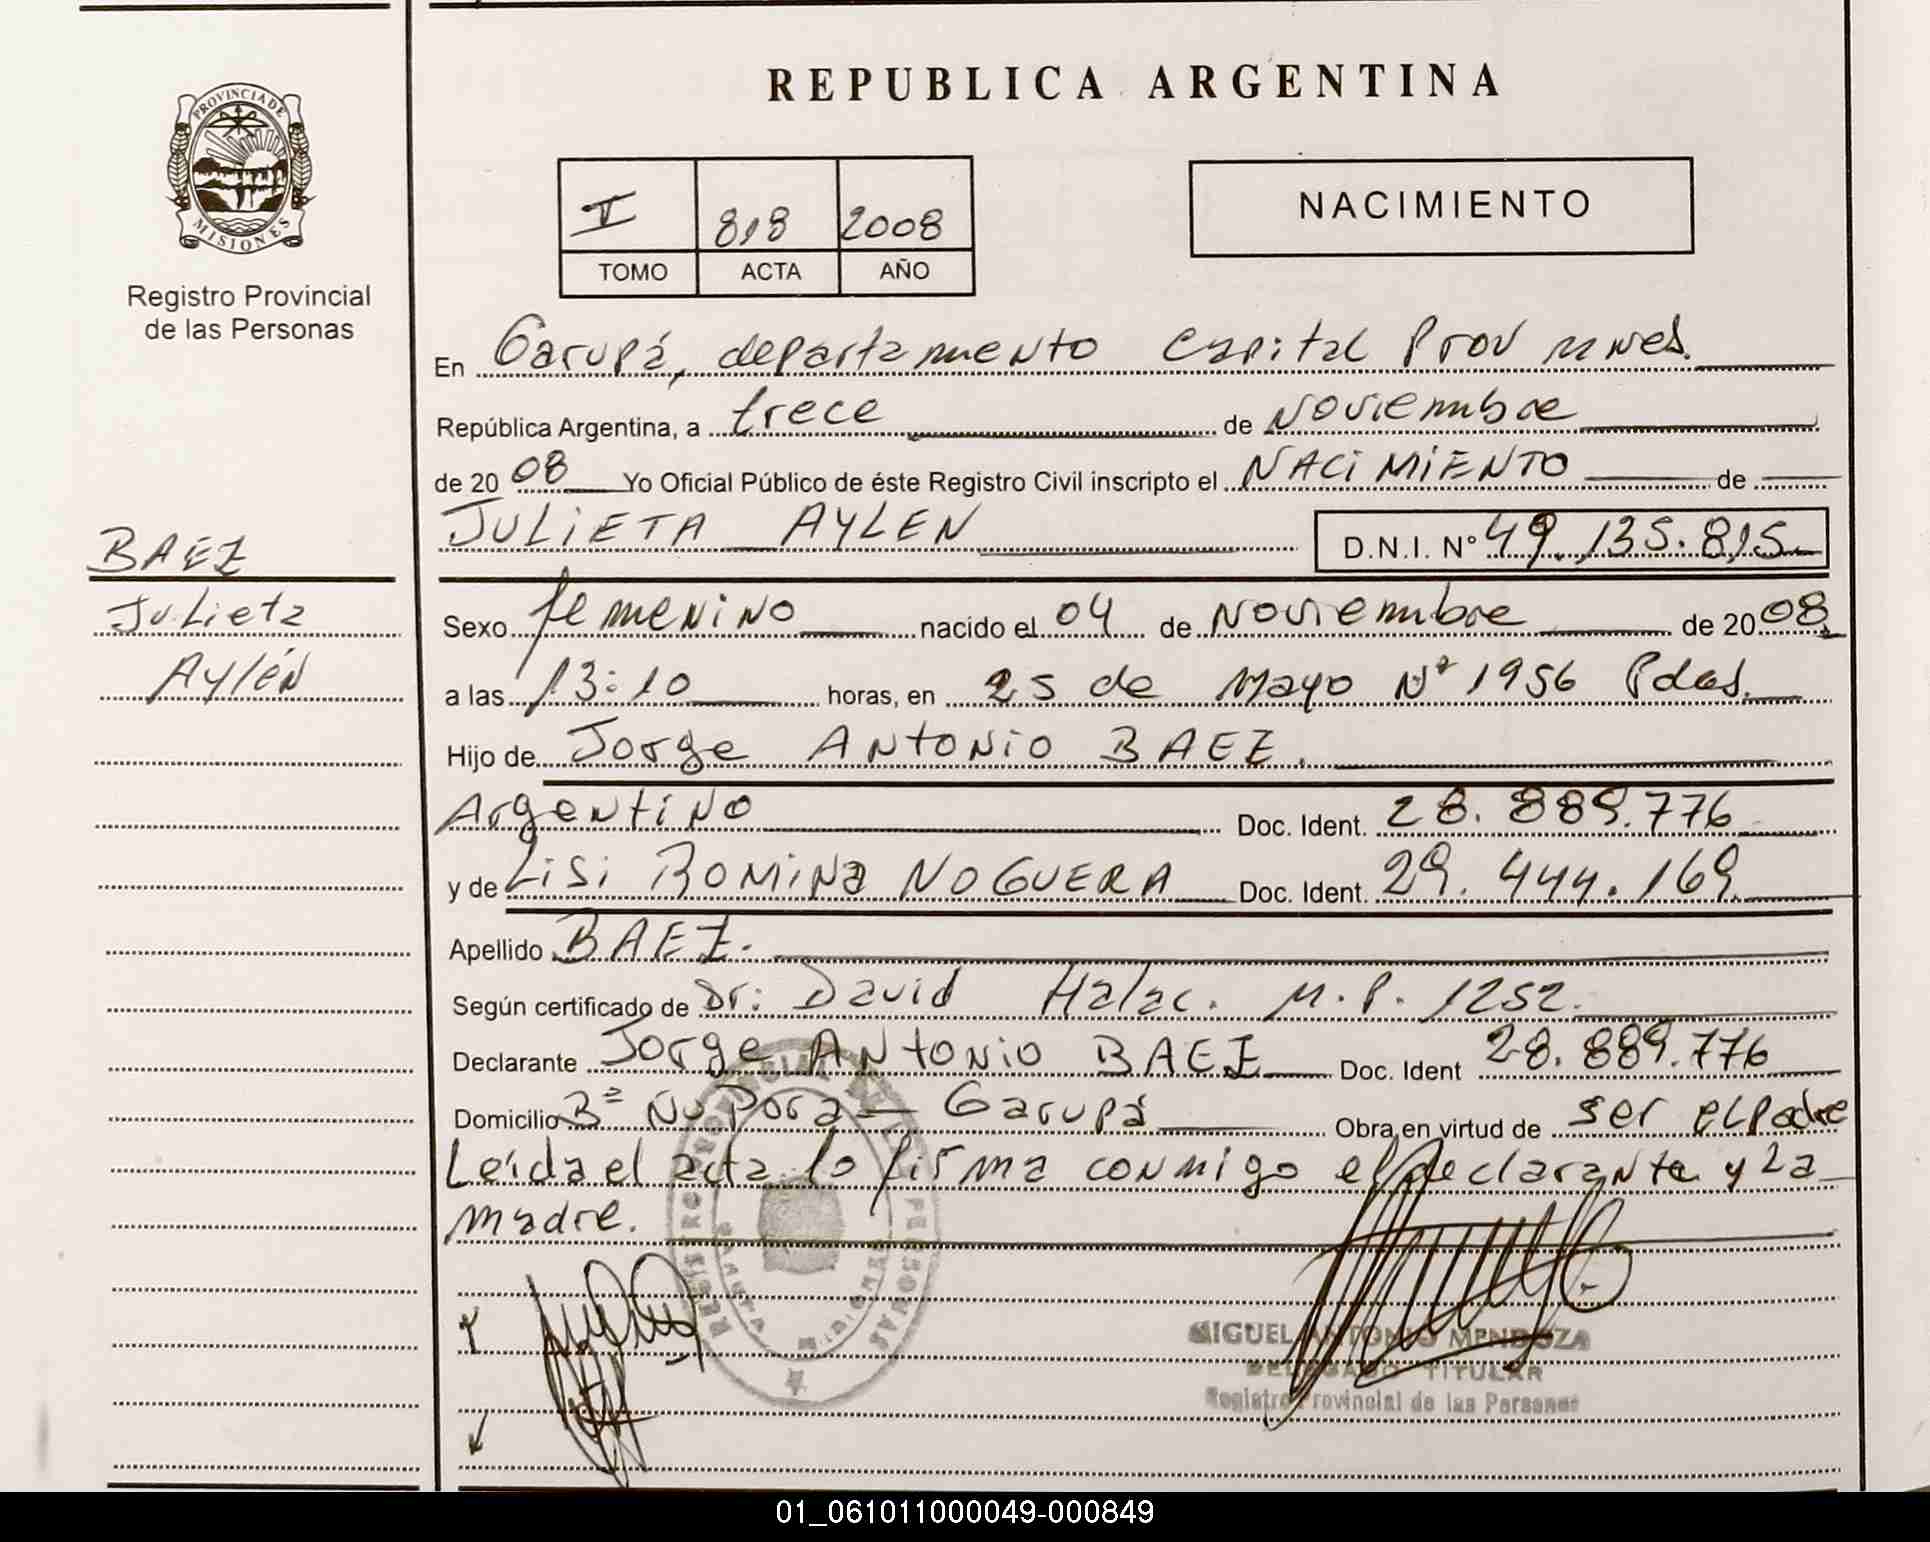 REPUBLICA ARGENTINA
PROVINCIA DE
MISIONES
Registro Provincial
de las Personas
V 818 2008
TOMO ACTA AÑO
NACIMIENTO
En Garupá, departamento Capital Prov Mnes.
República Argentina, a trece de Noviembre
de 2008 Yo Oficial Público de éste Registro Civil inscripto el NACIMIENTO de
JULIETA AYLEN D.N.I. N° 49.135.815
BAEZ
Julieta
Aylén
Sexo femenino nacido el 04 de Noviembre de 2008
a las 13:10 horas, en 25 de Mayo N° 1956 Pdas.
Hijo de Jorge ANTONIO BAEZ.
Argentino Doc. Ident. 28.889.776
y de LISI ROMINA NOGUERA Doc. Ident. 29.444.169
Apellido BAEZ.
Según certificado de Dr: David Halac. M.P. 1252.
Declarante Jorge ANTONIO BAEZ Doc. Ident 28.889.776
Domicilio B° Ñu Pora - Garupá Obra en virtud de ser el padre
Leída el acta lo firma conmigo el declarante y la
madre.
MIGUEL ANTONIO MENDOZA
DELEGADO TITULAR
Registro Provincial de las Personas
01_061011000049-000849